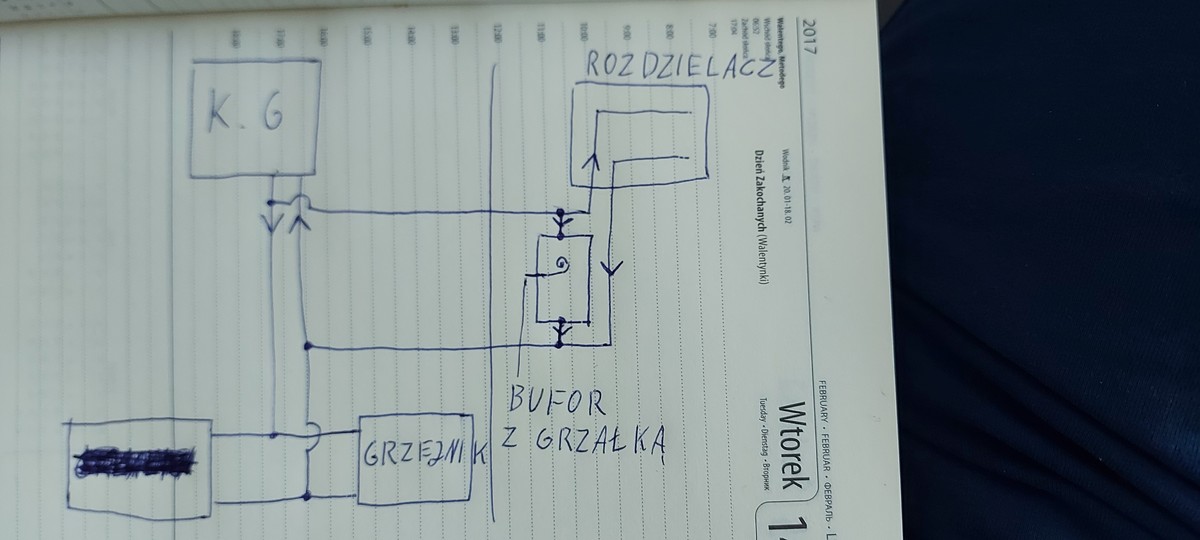 ROZDZIELACZ
K. G
BUFOR
Z GRZAŁKĄ
GRZEJNIK
2017
Walentego, Metodego
Wschód słońca
06:52
Zachód słońca
17:04
Wodnik 20.01-18.02
Dzień Zakochanych (Walentynki)
FEBRUARY • FEBRUAR • ФЕВРАЛЬ • L
Wtorek
Tuesday • Dienstag • Вторник
7:00
8:00
9:00
10:00
11:00
12:00
13:00
14:00
15:00
16:00
17:00
18:00